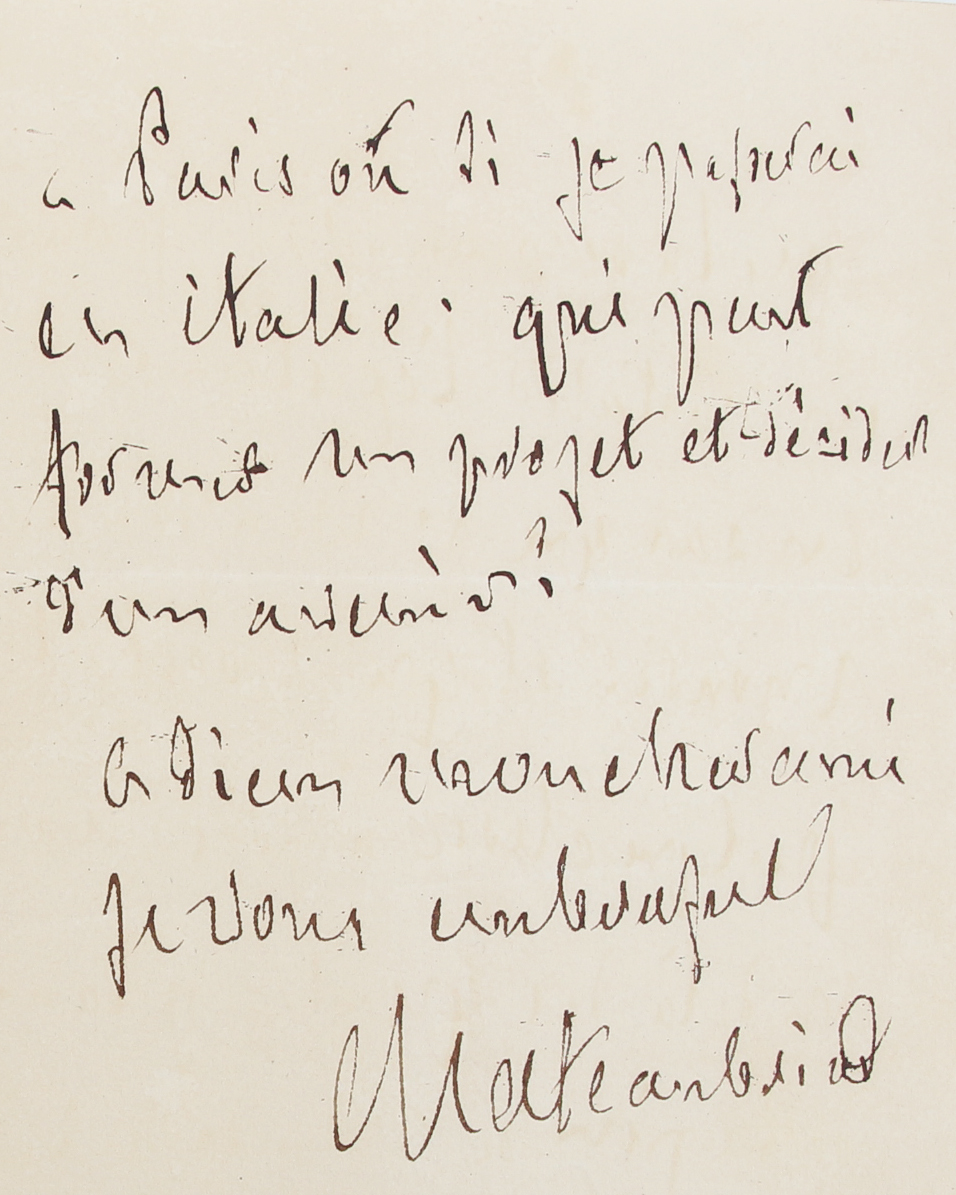 a Paris ou si je passerai
en italie. qui peut
former un projet et décider
d'un avenir?
adieu mon cher ami
je vous embrasse
Chateaubriand